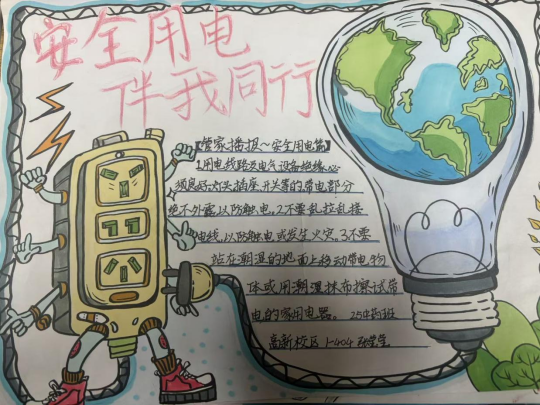 安全用电
伴我同行
【管家播报~安全用电篇】
1.用电线路及电气设备绝缘必
须良好,灯头插座,开关等的带电部分
绝不外露,以防触电,2.不要乱拉乱接
电线,以防触电或发生火灾,3.不要
站在潮湿的地面上移动带电物
体或用潮湿抹布擦试带
电的家用电器。 25中药班
高新校区 1-404